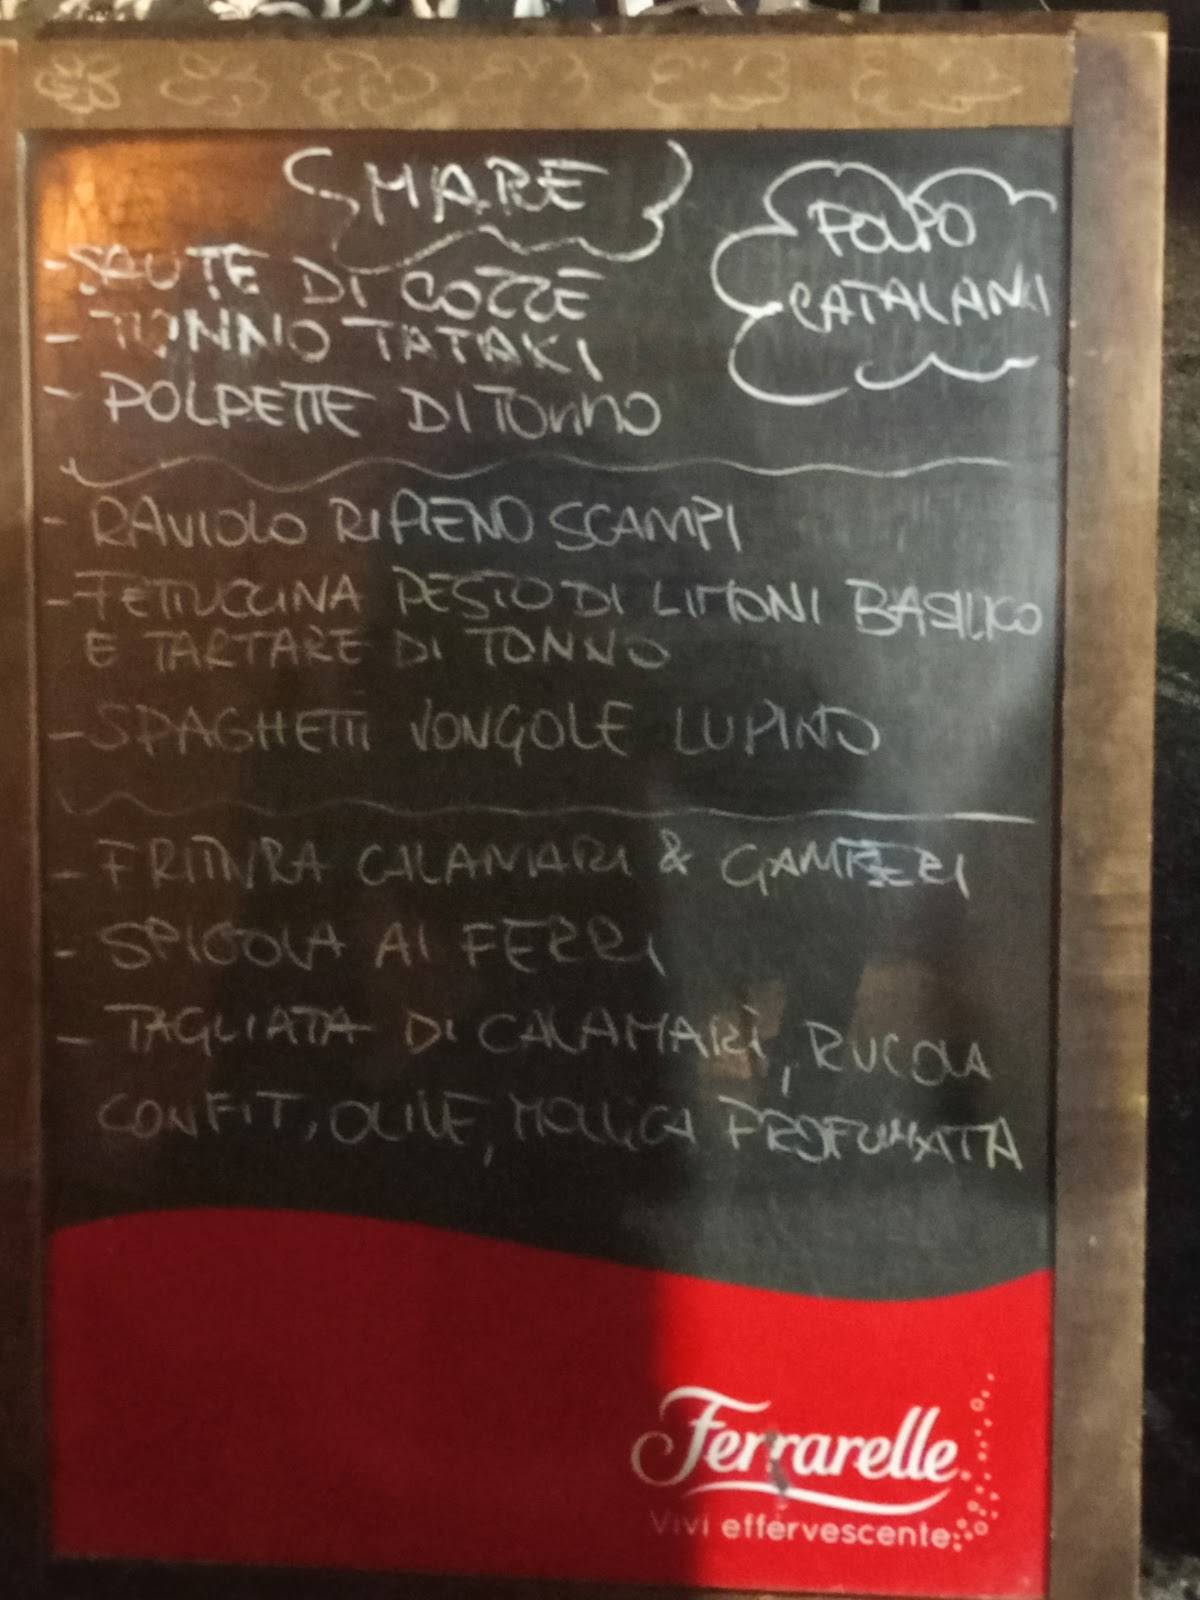 MARE
POLPO
CATALANI
- SAUTE DI COZZE
- TONNO TATAKI
- POLPETTE DI TONNO
- RAVIOLO RIPIENO SCAMPI
- FETTUCCINA PESTO DI LIMONI BASILICO
E TARTARE DI TONNO
- SPAGHETTI VONGOLE LUPINO
- FRITTURA CALAMARI & GAMBERI
- SPIGOLA AI FERRI
- TAGLIATA DI CALAMARI, RUCOLA
CONFIT, OLIVE, MOLLICA PROFUMATA
Ferrarelle
Vivi effervescente.